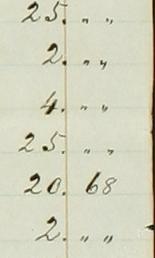 25. " "
2. " "
4. " "
25. " "
20. 68
2. " "